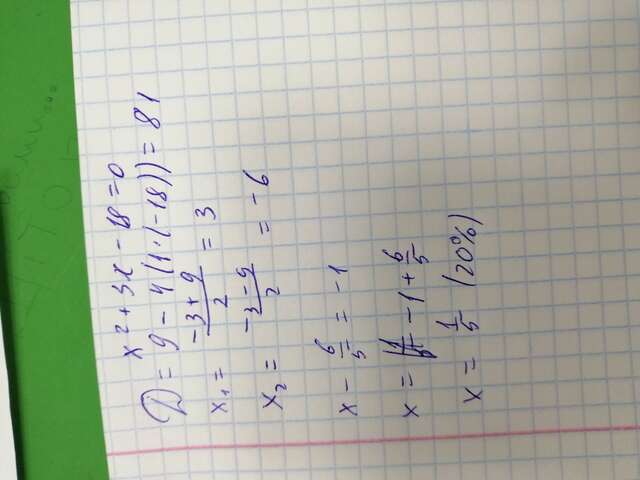 x² + 3x - 18 = 0
D = 9 - 4(1·(-18)) = 81
x₁ = (-3+9)/2 = 3
x₂ = (-3-9)/2 = -6
x - 6/5 = -1
x = -1 + 6/5
x = 1/5 (20%)